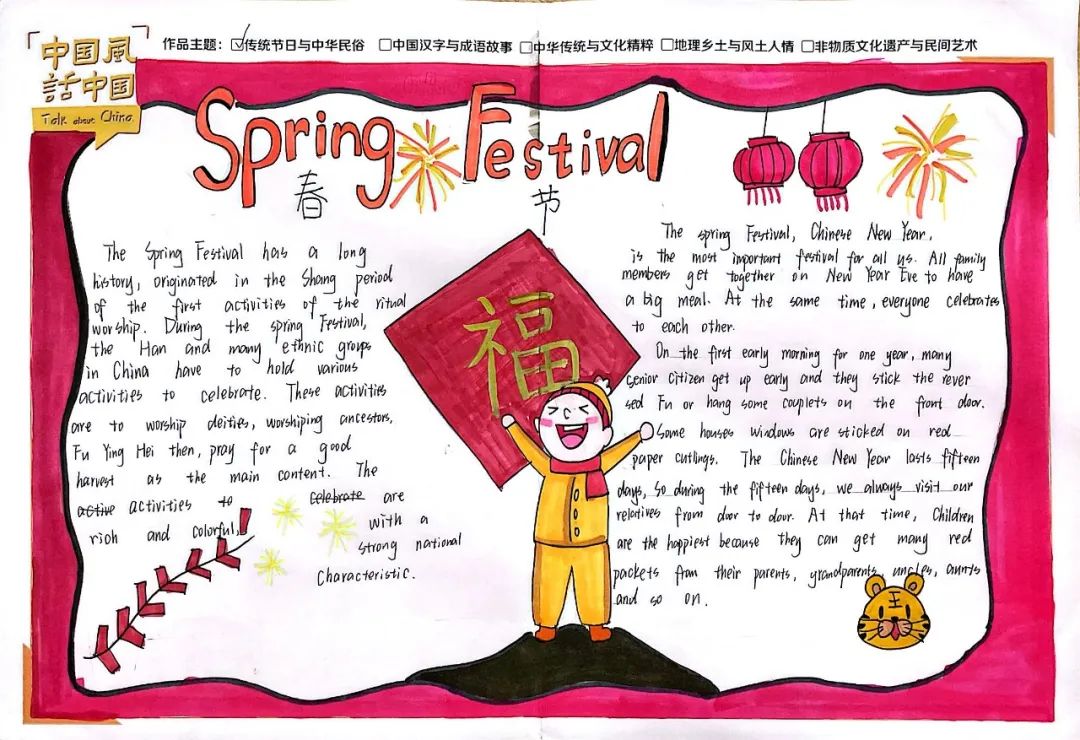 中国風
話中国
Talk about China
作品主题：☑传统节日与中华民俗 □中国汉字与成语故事 □中华传统与文化精粹 □地理乡土与风土人情 □非物质文化遗产与民间艺术
Spring Festival
春 节
The Spring Festival has a long
history, originated in the Shang period
of the first activities of the ritual
worship. During the spring Festival,
the Han and many ethnic groups
in China have to hold various
activities to celebrate. These activities
are to worship deities, worshiping ancestors,
Fu Ying Hei then, pray for a good
harvest as the main content. The
active activities to celebrate are
rich and colorful, with a
strong national
characteristic.
福
The spring Festival, Chinese New Year,
is the most important festival for all us. All family
members get together on New Year Eve to have
a big meal. At the same time, everyone celebrates
to each other.
On the first early morning for one year, many
senior citizen get up early and they stick the rever
sed Fu or hang some couplets on the front door.
Some houses windows are sticked on red
paper cutlings. The Chinese New Year lasts fifteen
days, so during the fifteen days, we always visit our
relatives from door to door. At that time, Children
are the happiest because they can get many red
packets from their parents, grandparents, uncles, aunts
and so on.
王